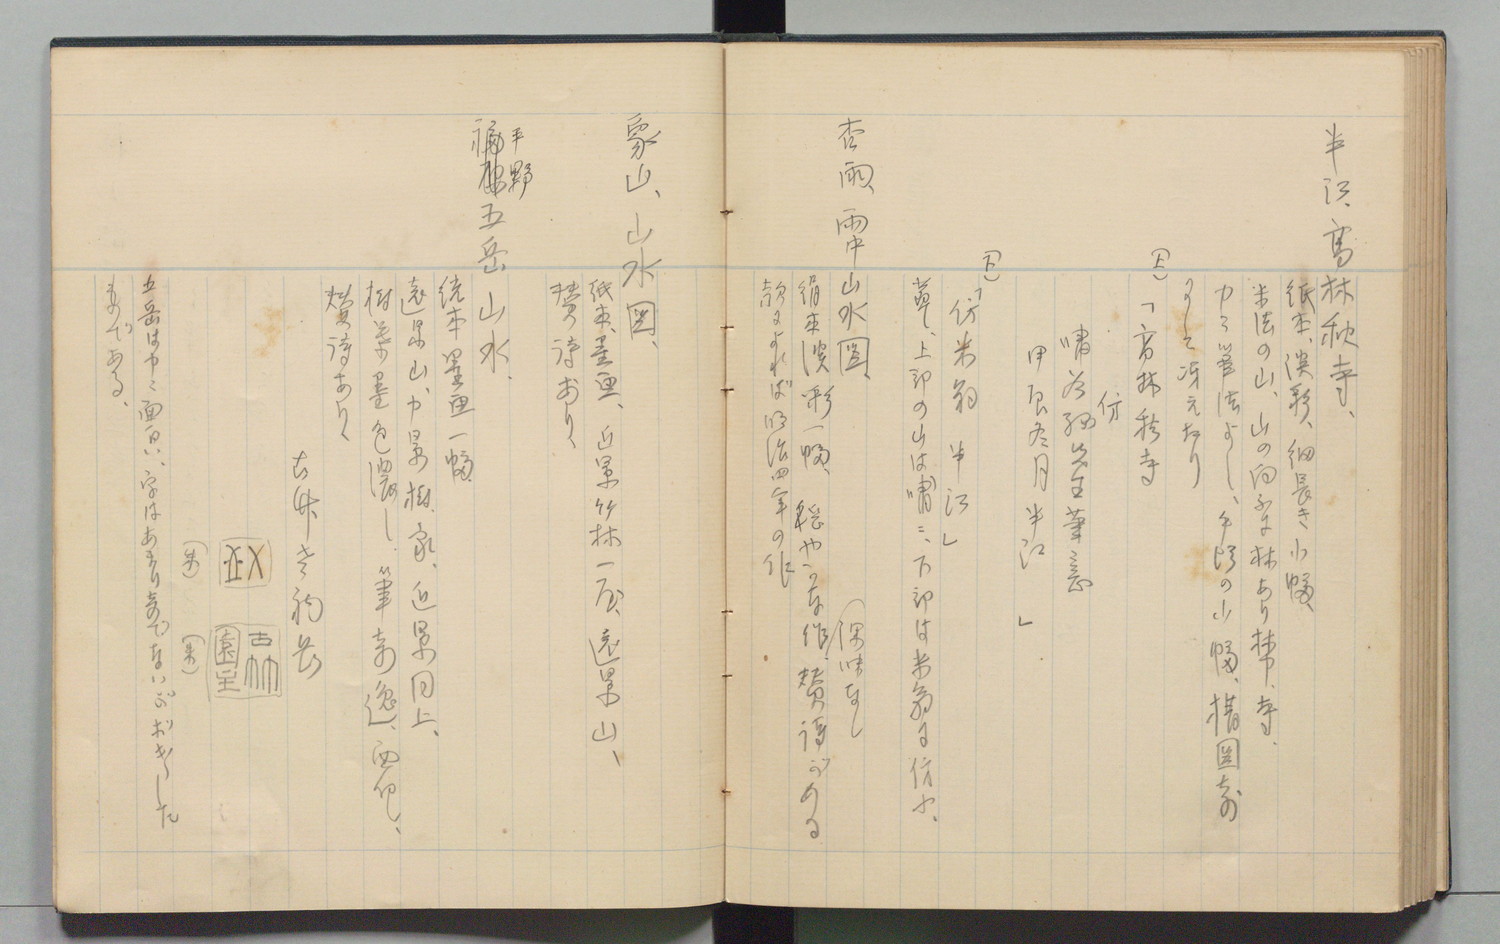 半江、高林秋寺、
紙本、淡彩、細長き小幅、
米法の山、山の向ふに林あり林中、寺、
筆法よし、の小幅、構圖奇
にして冴えたり
(上)「高林秋寺
仿
嘯谷翁先生筆意
甲辰冬月半江
」
(下)
「仿米翁 半江」
草し、上部の山は嘯に、下部は米翁に仿ふ、
杏雨、雨中山水圖、
絹本淡彩一幅、穏やかな作、賛詩がある
(深味なし
款によれば明治四年の作
象山、山水圖、
紙本、墨画、近景竹林一屋、遠景山、
賛詩あり、
平野
五岳 山水、
絖本墨画一幅
遠景山、中景樹、家、近景同上、
樹葉墨色濃し、筆奇逸、
賛詩あり、
古竹老衲岳
(朱)
(朱)
古竹園主
五岳は中々面白い、字はあまり奇でないがおもしろした
ものである、